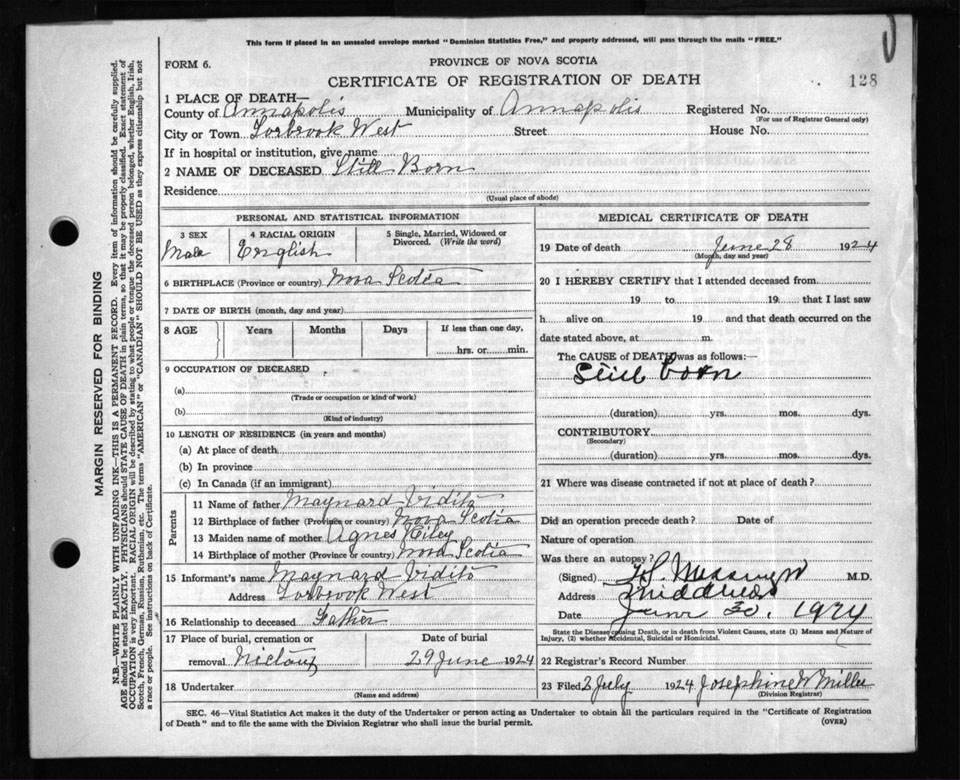 This form if placed in an unsealed envelope marked "Dominion Statistics Free," and properly addressed, will pass through the mails "FREE."
FORM 6.
PROVINCE OF NOVA SCOTIA
CERTIFICATE OF REGISTRATION OF DEATH
128
1 PLACE OF DEATH—
County of Annapolis Municipality of Annapolis Registered No.
(For use of Registrar General only)
City or Town Torbrook West Street House No.
If in hospital or institution, give name
2 NAME OF DECEASED Still Born
Residence
(Usual place of abode)
PERSONAL AND STATISTICAL INFORMATION
3 SEX 4 RACIAL ORIGIN 5 Single, Married, Widowed or Divorced. (Write the word)
Male English
6 BIRTHPLACE (Province or country) Nova Scotia
7 DATE OF BIRTH (month, day and year)
8 AGE Years Months Days If less than one day,
hrs. or min.
9 OCCUPATION OF DECEASED
(a)
(Trade or occupation or kind of work)
(b)
(Kind of industry)
10 LENGTH OF RESIDENCE (in years and months)
(a) At place of death
(b) In province
(c) In Canada (if an immigrant)
Parents
11 Name of father Maynard Vidito
12 Birthplace of father (Province or country) Nova Scotia
13 Maiden name of mother Agnes Riley
14 Birthplace of mother (Province or country) Nova Scotia
15 Informant's name Maynard Vidito
Address Torbrook West
16 Relationship to deceased Father
17 Place of burial, cremation or Date of burial
removal Nictaux 29 June 1924
18 Undertaker
(Name and address)
MEDICAL CERTIFICATE OF DEATH
19 Date of death June 28 1924
(Month, day and year)
20 I HEREBY CERTIFY that I attended deceased from
19 to 19 that I last saw
h alive on 19 and that death occurred on the
date stated above, at m.
The CAUSE of DEATH was as follows:—
Still born
(duration) yrs. mos. dys.
CONTRIBUTORY
(Secondary)
(duration) yrs. mos. dys.
21 Where was disease contracted if not at place of death?
Did an operation precede death? Date of
Nature of operation
Was there an autopsy?
(Signed) M.D.
Address
Date June 30, 1924
State the Disease causing Death, or in death from Violent Causes, state (1) Means and Nature of
Injury, (2) whether Accidental, Suicidal or Homicidal.
22 Registrar's Record Number
23 Filed 2 July 1924 Josephine W Miller
(Division Registrar)
SEC. 46—Vital Statistics Act makes it the duty of the Undertaker or person acting as Undertaker to obtain all the particulars required in the "Certificate of Registration
of Death" and to file the same with the Division Registrar who shall issue the burial permit.
(OVER)
MARGIN RESERVED FOR BINDING
N.B.—WRITE PLAINLY WITH UNFADING INK—THIS IS A PERMANENT RECORD. Every item of information should be carefully supplied.
AGE should be stated EXACTLY. PHYSICIANS should STATE CAUSE OF DEATH in plain terms, so that it may be properly classified. Exact statement of
OCCUPATION is very important. RACIAL ORIGIN will be described by stating to what people or tongue the deceased person belonged, whether English, Irish,
Scotch, French, German, Russian, Ruthenian, etc. The terms "AMERICAN" or "CANADIAN" SHOULD NOT BE USED as they express citizenship but not
a race or people. See instructions on back of Certificate.